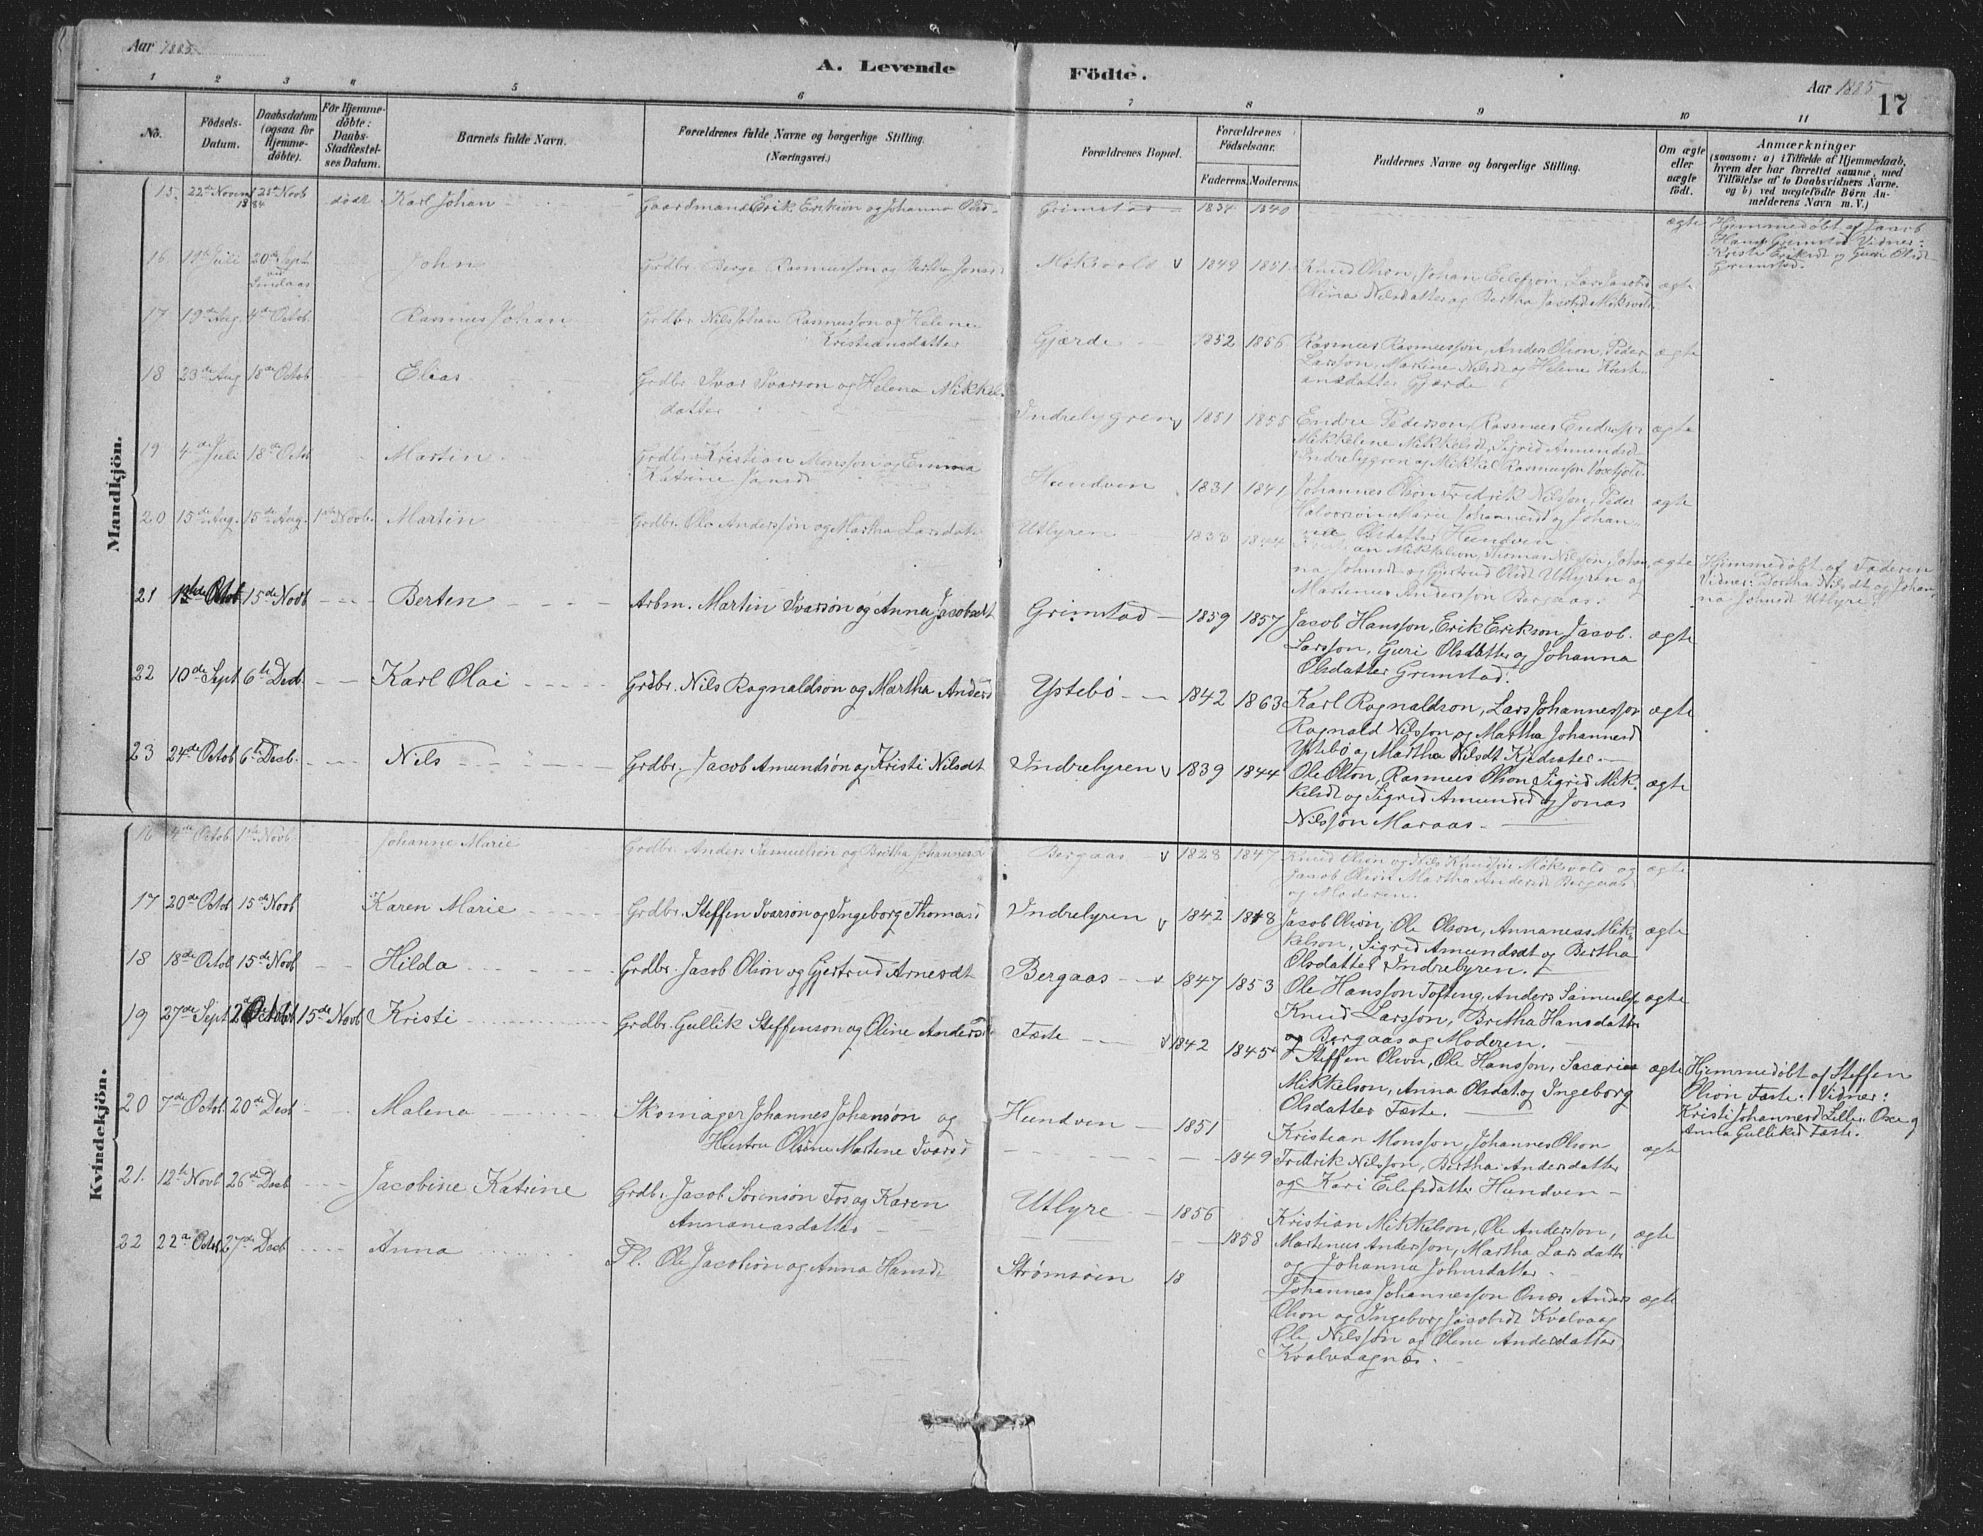 Aar 1885.
A. Levende Födte.
Aar 1885
17
1 2 3 4 5 6 7 8 9 10 11
No.
Födsels-Datum.
Daabsdatum (ogsaa for Hjemme-döbte).
För Hjemme-döbte: Daabs-Stadfæstel-ses Datum.
Barnets fulde Navn.
Forældrenes fulde Navne og borgerlige Stilling. (Næringsvei.)
Forældrenes Bopæl.
Forældrenes Födselsaar. Faderens. Moderens.
Faddernes Navne og borgerlige Stilling.
Om ægte eller uægte födt.
Anmærkninger (saasom: a) i Tilfælde af Hjemmedaab, hvem der har forrettet samme, med Tilföielse af to Daabsvidners Navne. og b) ved uægtefödte Börn An-melderens Navn m. V.)
Mandkjön.
15. 22de Novemb 1884 23de Novb död Karl Johan Gaardmand Erik Erikson og Johanna Olsd. Grimstad 1834 1840 ægte
Hjemmedøbt af Jacob
Hans. Grimstad. Vidner:
Kristi Eriksdt og Guri Olsdt
Grimstad.
16 19de Juli 20de Sept Lindaas John Grdbr. Børge Rasmusson og Bertha Jonsd Moksvold v 1849 1851 Knud Olson, Johan Eilefson, Lars Jacobs ægte
Olina Nilsdatter og Bertha Jacobsd Moksvold
17 19de Aug. 4de Octob Rasmus Johan Grdbr Nils Johan Rasmusson og Helene
Kristiansdatter Gjærde 1852 1856 Rasmus Rasmusson, Anders Olson, Peder ægte
Larsson, Martine Nilsdt og Helene Kristi-
ansdatter Gjærde
18 23de Aug 18de Octob Elias Grdbr. Ivar Ivarson og Helena Mikkels
datter Indrelygren v 1851 1855 Endre Pederson, Rasmus Endreson ægte
Mikkeline Mikkelsdt, Sigrid Amundsd
Indrelygren og Mikkel Rasmusson
19 4de Juli 18de Octb Martin Grdbr. Kristian Monsson og Emma
Katrine Jansdt Hundven 1831 1841 Johannes Olson, Fredrik Nilsson, Peder ægte
Halvorson, Marie Johannesdt og Johan-
ne Olsdatter Hundven
20 15de Aug. 15de Aug. 1ste Novbr Martin Grdbr. Ole Andersson og Martha Larsdatt Utlyren 1833 1844 an Mikkelson, Thomas Nilsson, Johan ægte
na Johnsdt og Gjertrud Olsdt Utlyren og
Martenus Andersson Bergaas.
Hjemmedøbt af Faderen
Vidner: Bertha Nilsdt og Johan-
na Johnsdt Utlyre.
21 Octob 15de Novb Berten Arbm. Martin Ivarsøn og Anne Jacobsdt Grimstad 1859 1857 Jacob Hansson, Erik Erikson, Jacob ægte
Larsson, Guri Olsdatter og Johanna
Olsdatter Grimstad.
22 10de Sept 6te Decb Karl Olai Grdbr. Nils Ragnaldson og Martha Andersd Ystebö 1842 1863 Karl Ragnaldson, Lars Johannesson ægte
Ragnald Nilsson og Martha Johannesd
Ystebö og Martha Nilsdt
23 24de Octob 6te Decb. Nils Grdbr. Jacob Amundsøn og Kristi Nilsdt Indrelyren v 1839 1844 Ole Olson, Rasmus Olson, Sigrid Mik- ægte
kelsdt og Sigrid Amundsd og Jonas
Nilsson Maraas.
Kvindekjön.
16 4de Octob 1ste Novb. Johanne Marie Grdbr. Anders Samuelson og Britha Johannesd Bergaas v 1828 1847 Knud Olson og Nils Knudson Moksvold og ægte
Jacob Olson, Martha Andersdt Bergaas
og Moderen.
17 20de Octob 15de Novb Karen Marie Grdbr. Steffen Ivarson og Ingeborg Thomasd Indrelyren v 1842 1848 Jacob Olson, Ole Olson, Annanias Mik- ægte
kelson, Sigrid Amundsdt og Bertha
Olsdatter Indrelyren.
18 18de Octob 15de Novb Hilda Grdbr. Jacob Olson og Gjertrud Arnesdt Bergaas v 1847 1853 Ole Hansson Tofteng, Anders Samuelso ægte
Knud Larsson, Britha Hansdatter
og Bergaas og Moderen.
19 27de Sept 2de Octob 15de Novb Kristi Grdbr. Gullik Steffenson og Oline Andersd Fæste v 1842 1845 Steffen Olson, Ole Hansson, Sacarias ægte
Mikkelson, Anna Olsdat. og Ingeborg
Olsdatter Fæste.
Hjemmedøbt af Steffen
Olson Fæste. Vidner:
Kristi Johannesd Lille-Oxe og
Anna Gulliksd Fæste.
20 7de Octob 20de Decb Malena Skomager Johannes Johansøn og
Hustru Olsine Martene Ivarsd Hundven 1851 1849 Kristian Monsson, Johannes Olson ægte
Fredrik Nilsson, Bertha Andersdatter
og Kari Eilefsdatter Hundven
21. 12te Novb 26de Decb Jacobine Katrine Grdb. Jacob Sørensøn Fos og Karen
Annaniasdatter Utlyre 1856 1858 Kristian Mikkelson, Ole Andersson, ægte
Martenus Andersson, Martha Larsdatter
og Johanna Johnsdatter
22 22de Octob 27de Decb Anna Pl. Ole Jacobson og Anna Hansdt Strømsøen 18 Johannes Johannesson Onæs Anders ægte
Olson og Ingeborg Jacobsdt Kvalvaag
Ole Nilsson og Oline Andersdatter
Kvalvaagnæs.